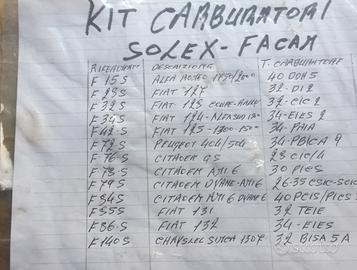 KIT CARBURATORI
SOLEX-FACAM
RIFERIMENTO DESCRIZIONE T. CARBURATORE
F 15 S ALFA ROMEO 1750/2000 40 DDH 5
F 23 S FIAT 127 32-DI 2
F 32 S FIAT 128 COUPE-RALLY 32-CIC 2
F 34 S FIAT 124-ALFASUD 34-EIES 2
F 42 S FIAT 125 34-PAIA
F 72 S PEUGEOT 404/504 34-PBICA 9
F 76 S CITROEN GS 28 CIC/4
F 78 S CITROEN AMI 6 30 PICS
F 79 S CITROEN DYANE-AMI 6 26-35 CSIC-SCIC
F 84 S CITROEN AMI 6 DYANE 6 40 PCIS/PICS
F 85 S FIAT 131 32 TEIE
F 86 S FIAT 132 34-EIES
F 140 S CHRYSLER SIMCA 1307 32 BISA 5A
subito